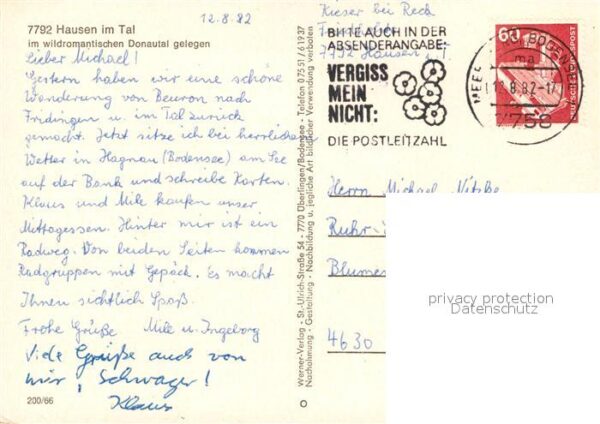 12.8.82
7792 Hausen im Tal
im wildromantischen Donautal gelegen
Lieber Michael!
Gestern haben wir eine schöne
Wanderung von Beuron nach
Fridingen u. im Tal zurück
gemacht. Jetzt sitze ich bei herrlichem
Wetter in Hagnau (Bodensee) am See
auf der Bank und schreibe Karten.
Klaus und Mile kaufen unser
Mittagessen. Hinter mir ist ein
Radweg. Von beiden Seiten kommen
Radgruppen mit Gepäck. Es macht
Ihnen sichtlich Spaß.
Frohe Grüße Mile u. Ingeborg
Viele Grüße auch von
mir, Schwager!
Klaus
200/66
Werner-Verlag - St.-Ulrich-Straße 54 - 7770 Überlingen/Bodensee - Telefon 07551/61937
Nachahmung - Gestaltung - Nachbildung u. jegliche Art bildlicher Verwendung verboten
Kieser bei Reck
7792 Hausen
BITTE AUCH IN DER
ABSENDERANGABE:
VERGISS
MEIN
NICHT:
DIE POSTLEITZAHL
60
BUNDESPOST
MEE
BODENSEE
8.82-17
7758
Herrn Michael
Ruhr-
Blumen
4630
privacy protection
Datenschutz